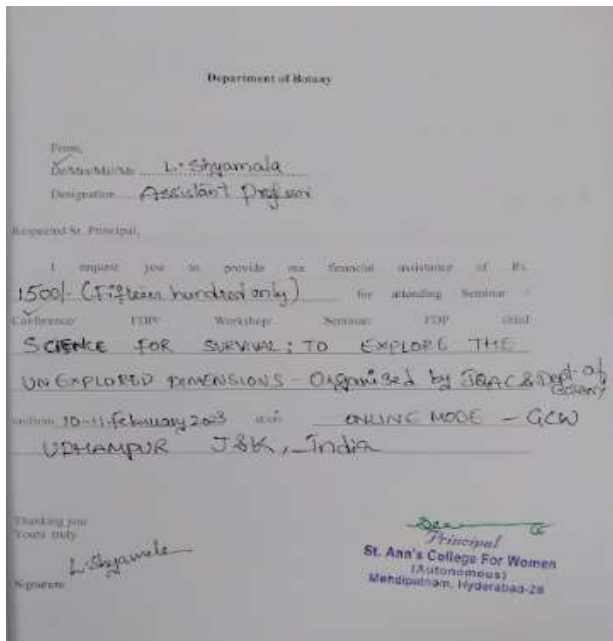 Department of Botany
From,
Dr/Mrs/Ms/Mr L. Shyamala
Designation Assistant Professor
Respected Sr. Principal,
I request you to provide me financial assistance of Rs.
1500/- (Fifteen hundred only) for attending Seminar /
Conference/ FDP/ Workshop/ Seminar/ FDP titled
SCIENCE FOR SURVIVAL: TO EXPLORE THE
UNEXPLORED DIMENSIONS - Organised by IQAC & Dept of Botany
10-11 February 2023 ONLINE MODE - GCW
UDHAMPUR J&K, India
Thanking you
Yours truly
L. Shyamala
Signature
Principal
St. Ann's College For Women
(Autonomous)
Mehdipatnam, Hyderabad-28